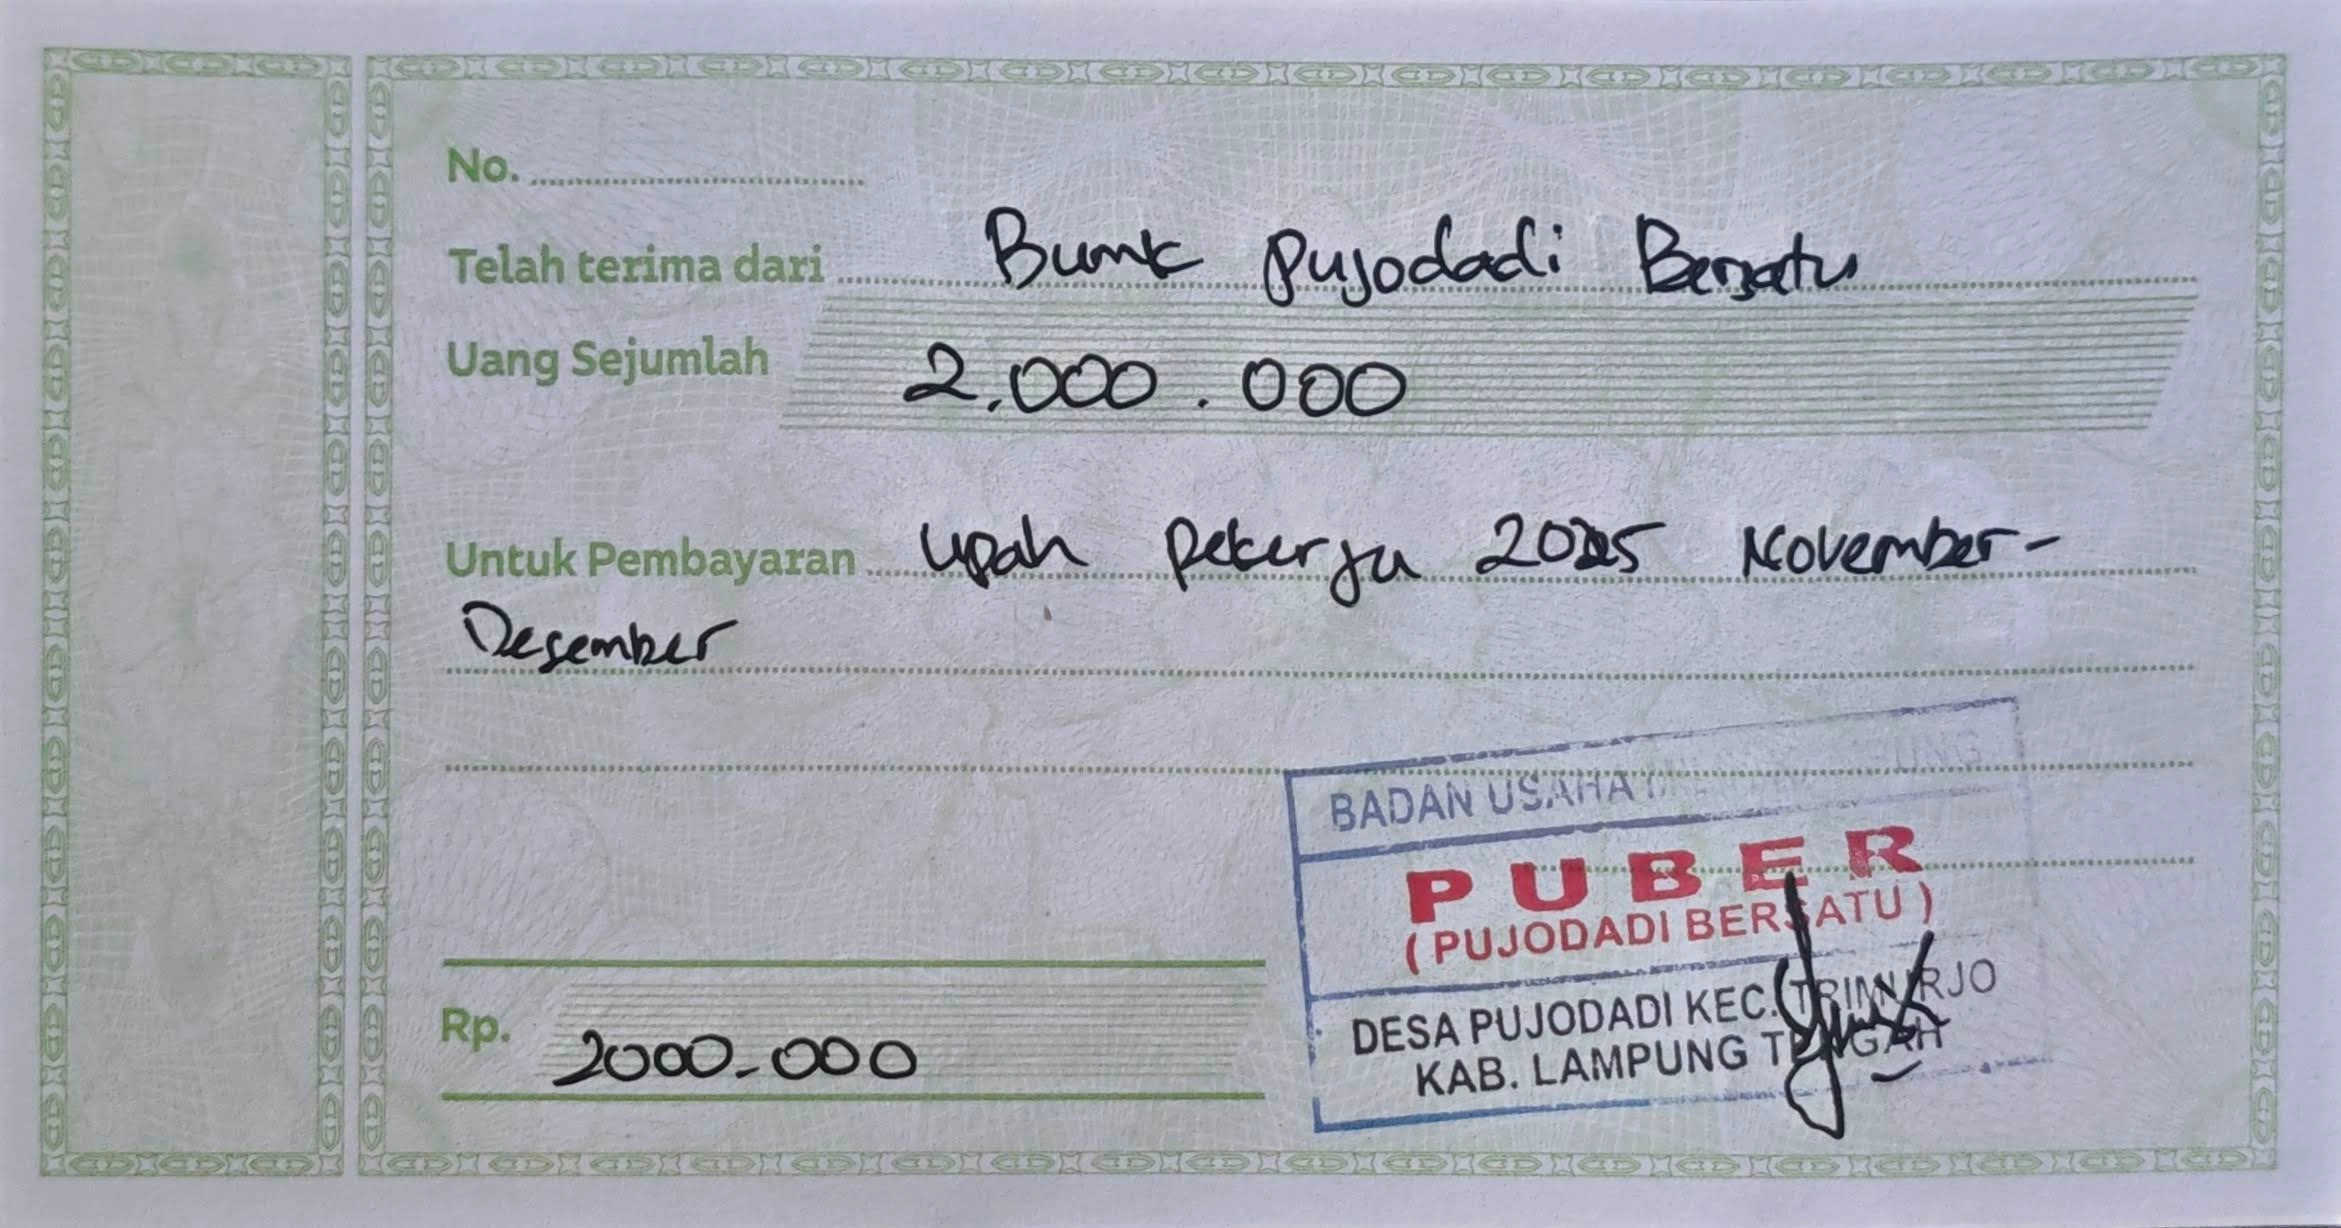 No. ..........
Telah terima dari Bumk Pujodadi Bersatu
Uang Sejumlah 2.000.000
Untuk Pembayaran Upah Pekerja 2025 November-
Desember
BADAN USAHA
PUBER
( PUJODADI BERSATU )
DESA PUJODADI KEC. TRIMURJO
KAB. LAMPUNG TENGAH
Rp. 2000.000